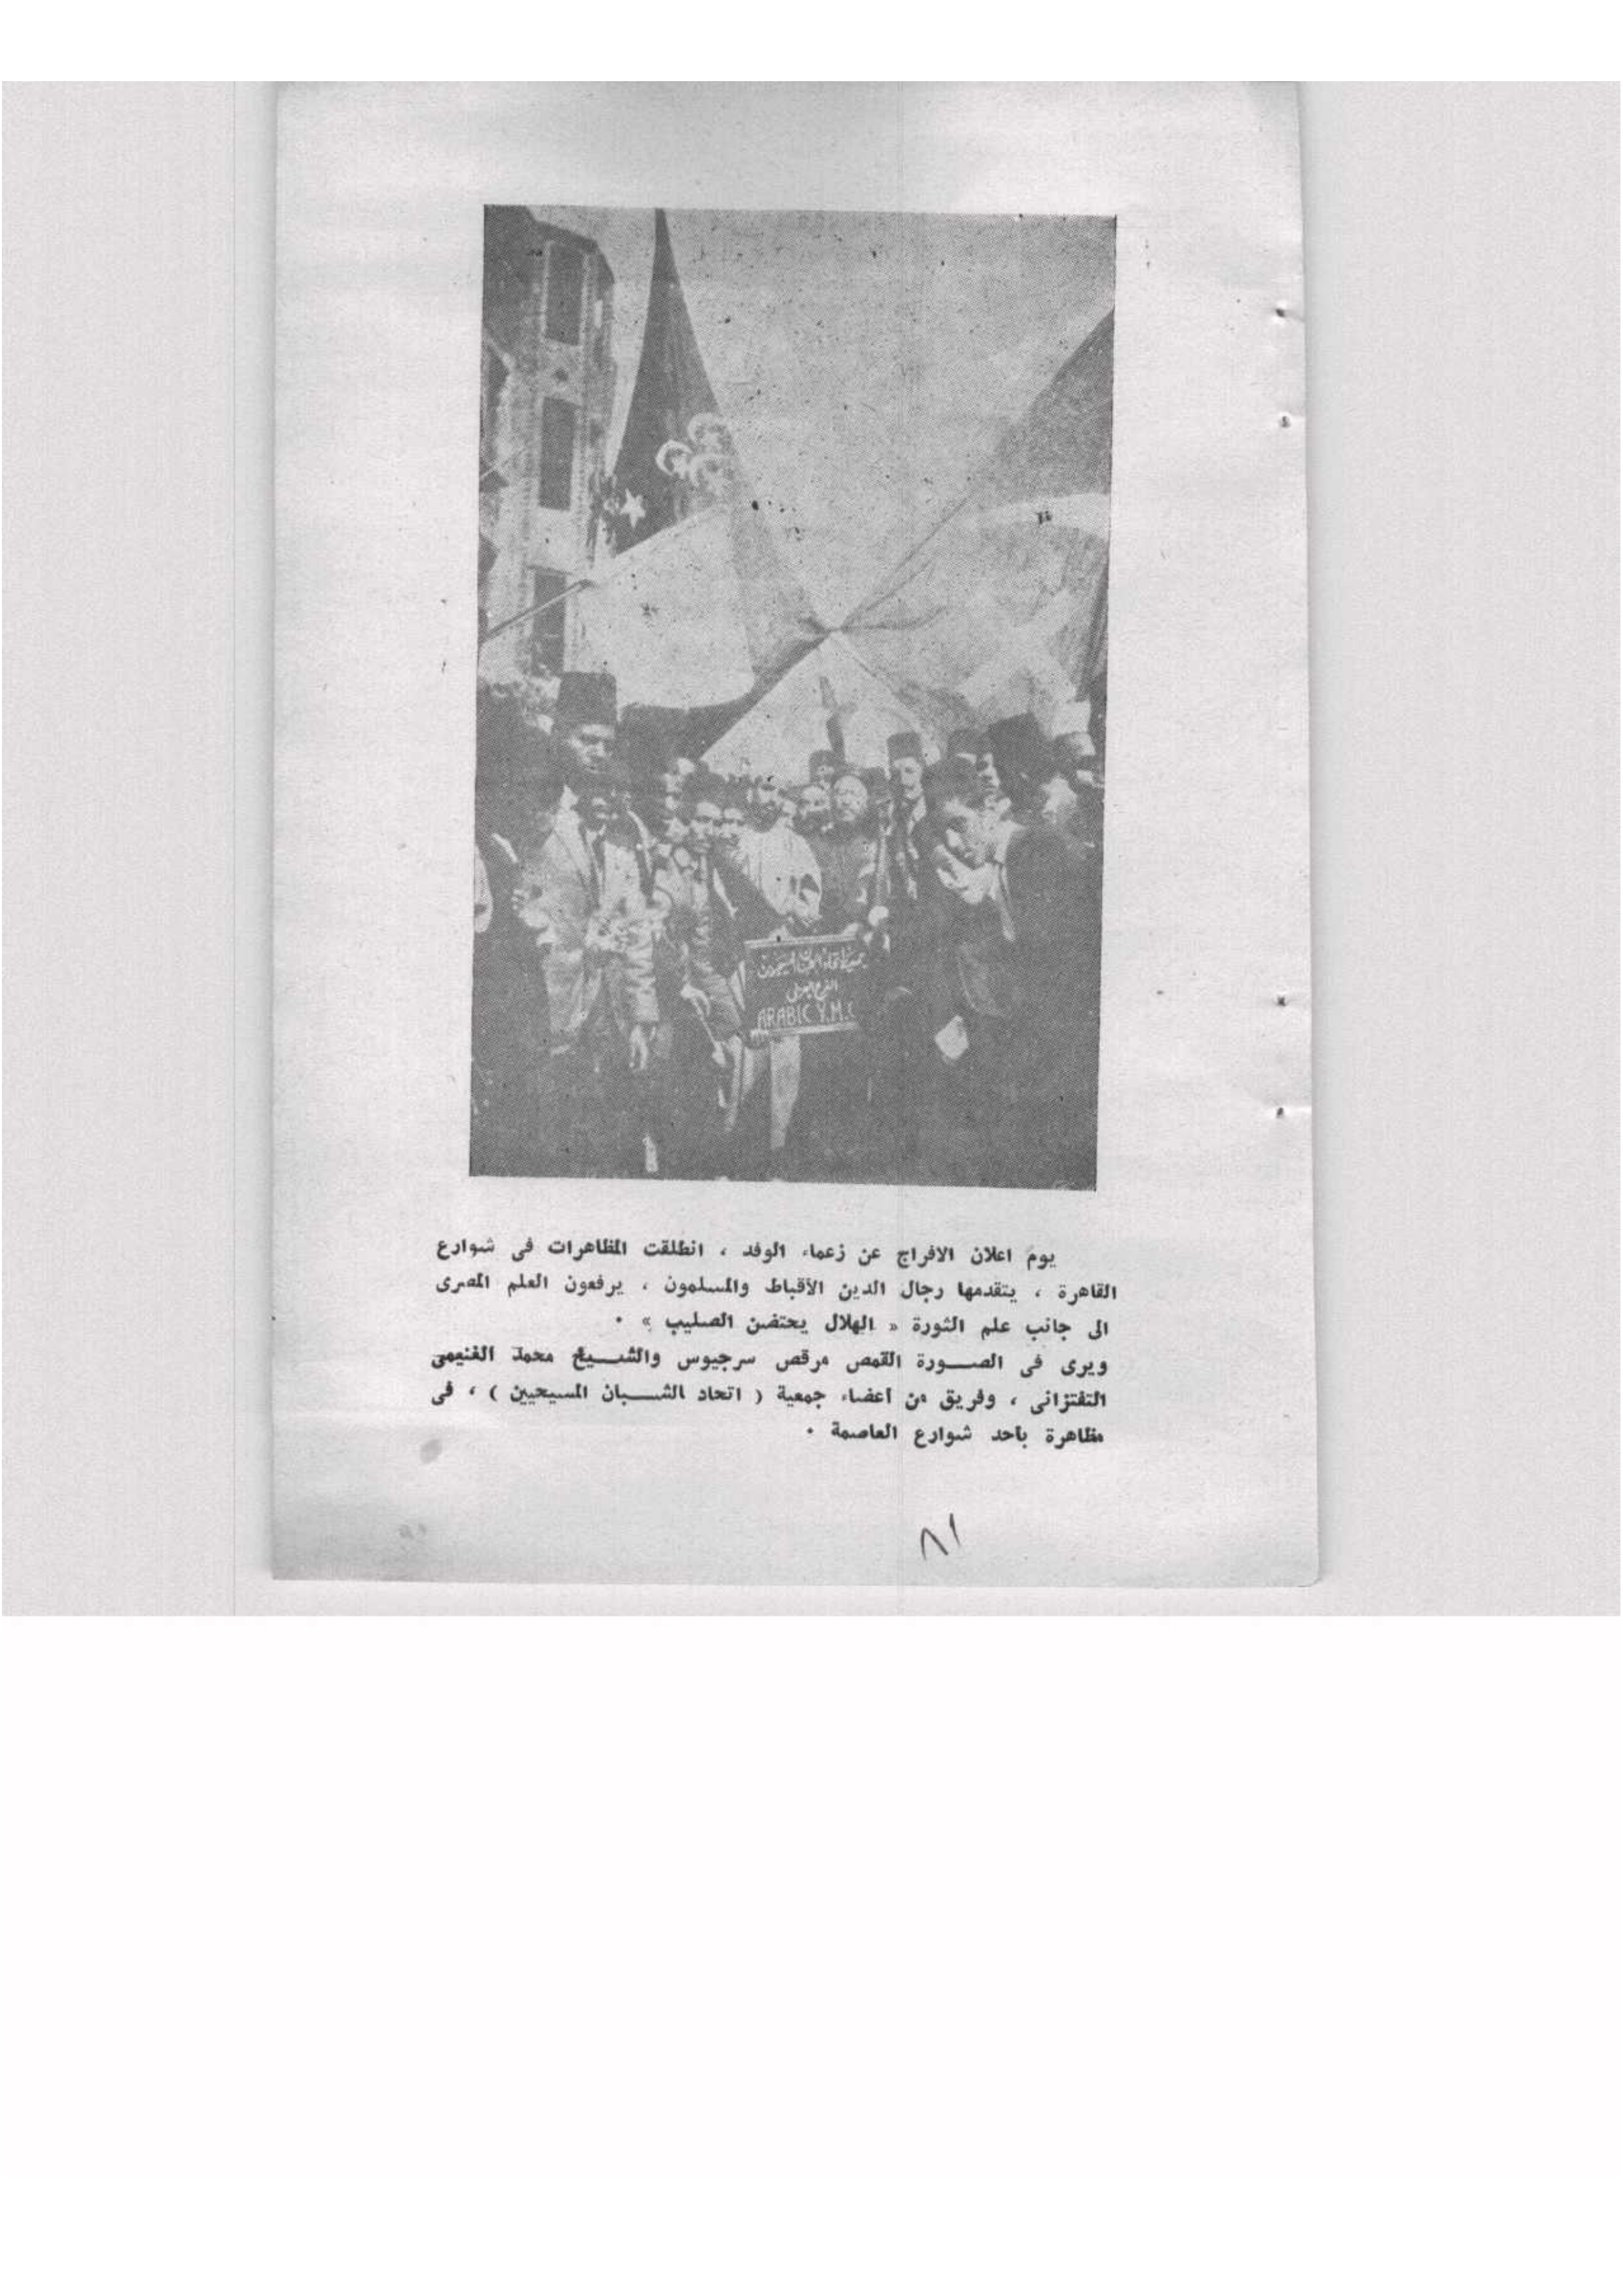 جمعية اتحاد الشبان المسيحيين
الفرع العربى
ARABIC Y.M.C
يوم اعلان الافراج عن زعماء الوفد ، انطلقت المظاهرات فى شوارع
القاهرة ، يتقدمها رجال الدين الأقباط والمسلمون ، يرفعون العلم المصرى
الى جانب علم الثورة « الهلال يحتضن الصليب » .
ويرى فى الصـــورة القمص مرقص سرجيوس والشـــيخ محمد الغنيمى
التفتزانى ، وفريق من أعضاء جمعية ( اتحاد الشـــبان المسيحيين ) ، فى
مظاهرة بأحد شوارع العاصمة .
٨١